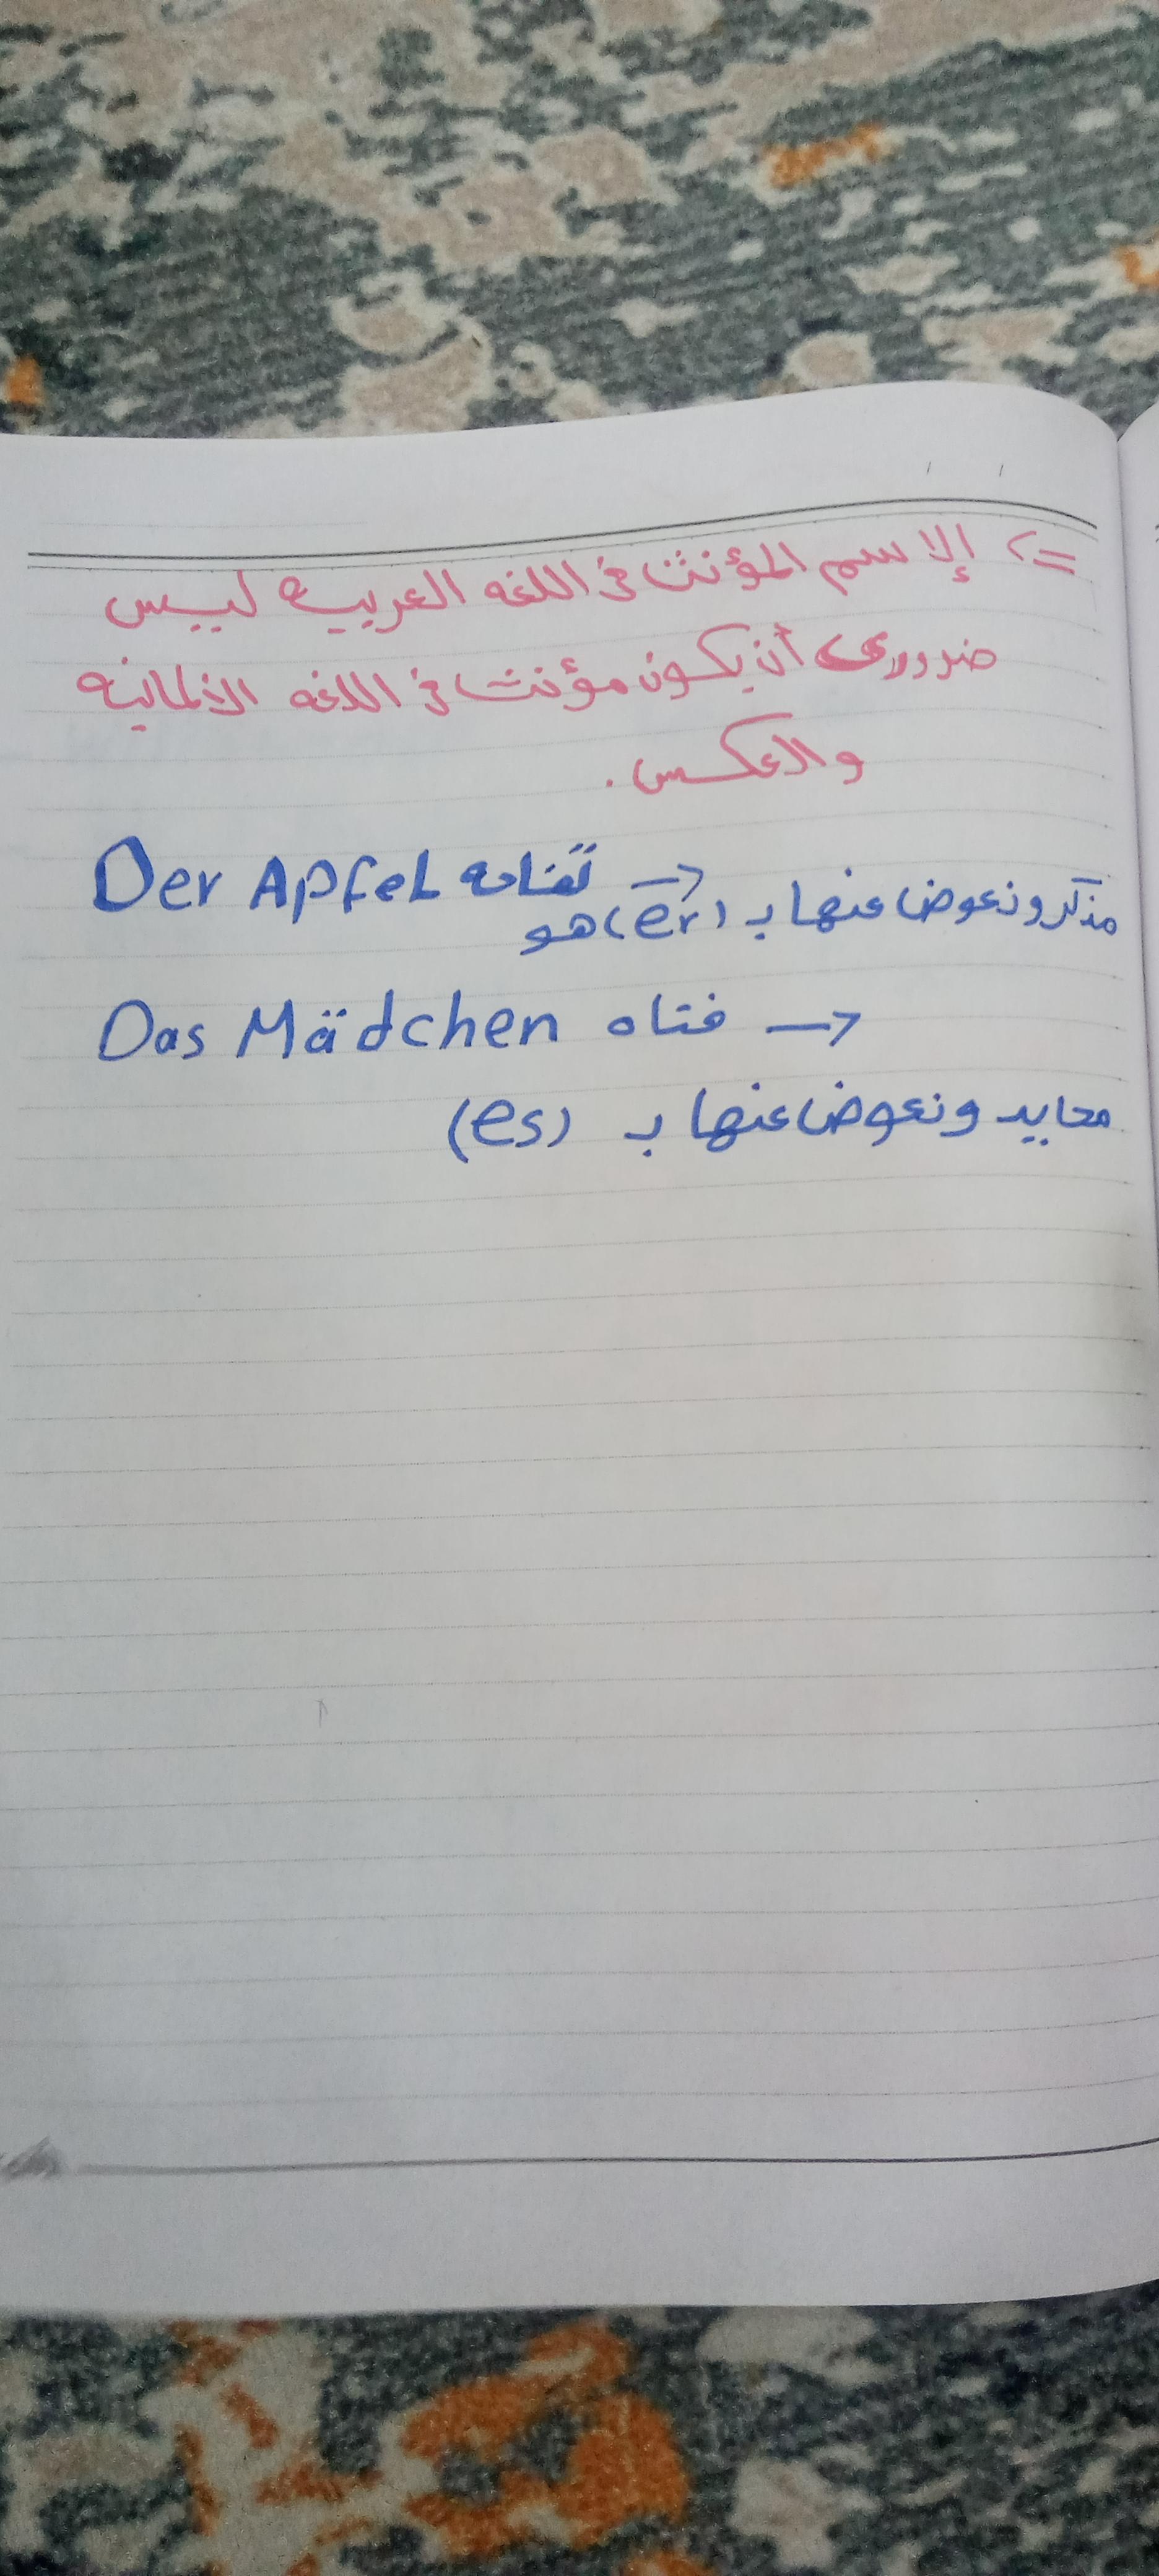 => إلاسم المؤنث في اللغه العربيه ليس
ضرورى أن يكون مؤنث في اللغه الالمانيه
والعكس .
Der Apfel تفاحه →
مذكر ونعوض عنها بـ (er) هو
Das Mädchen فتاه →
محايد ونعوض عنها بـ (es)